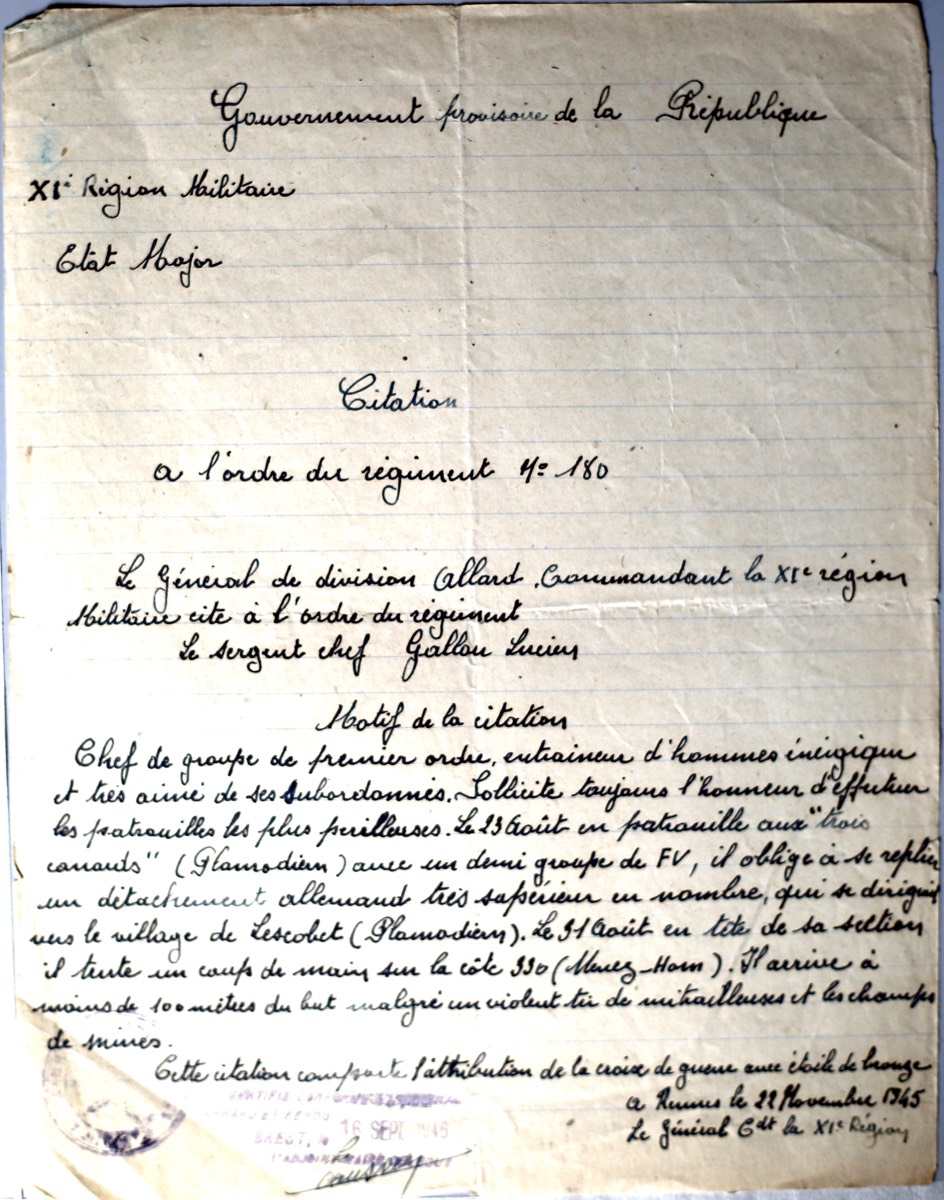 Gouvernement provisoire de la République
XIe Région Militaire
Etat Major
Citation
a l'ordre du régiment No 180
Le Général de division Allard Commandant la XIe région
Militaire cite à l'ordre du régiment
Le sergent chef Gallou Lucien
Motif de la citation
Chef de groupe de premier ordre, entraineur d'hommes énergique
et très aimé de ses subordonnés. Sollicite toujours l'honneur d'effectuer
les patrouilles les plus perilleuses. Le 23 Août en patrouille aux "trois
canards" (Plamodiern) avec un demi groupe de FV, il oblige à se replier
un détachement allemand très supérieur en nombre, qui se dirigeait
vers le village de Lescobet (Plamodiern). Le 31 Août en tête de sa section
il tente un coup de main sur la côte 330 (Menez-Hom). Il arrive à
moins de 100 mètres du but malgré un violent tir de mitrailleuses et les champs
de mines.
Cette citation comporte l'attribution de la croix de guerre avec étoile de bronze
a Rennes le 22 Novembre 1945
Le Général Cdt la XIe Région
CERTIFIE
BREST, le 16 SEPT 1946
L'ADJOINT